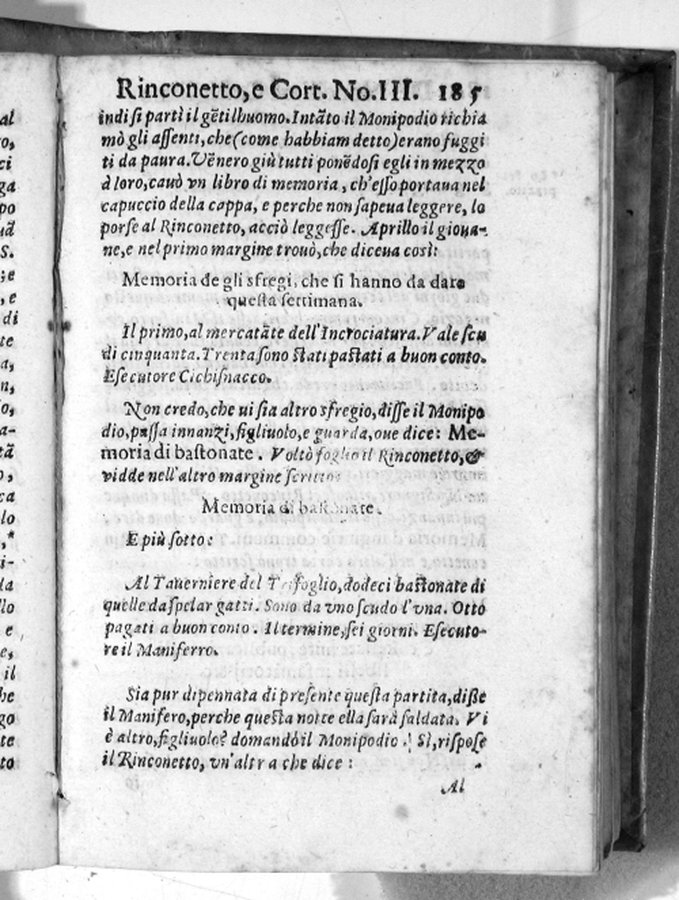 Rinconetto, e Cort. No. III. 185
indi si partì il gẽtilhuomo. Intãto il Monipodio richia
mò gli assenti, che (come habbiam detto) erano fuggi
ti da paura. Vẽnero giù tutti ponẽdosi egli in mezzo
à loro, cauò vn libro di memoria, ch'esso portaua nel
capuccio della cappa, e perche non sapeua leggere, lo
porse al Rinconetto, acciò leggesse. Aprillo il gioua-
ne, e nel primo margine trouò, che diceua così:
Memoria de gli sfregi, che si hanno da dare
questa settimana.
Il primo, al mercatãte dell'Incrociatura. Vale scu
di cinquanta. Trenta sono stati pastati a buon conto.
Esecutore Cichisnacco.
Non credo, che ui sia altro sfregio, disse il Monipo
dio, passa innanzi, figliuolo, e guarda, oue dice: Me-
moria di bastonate. Voltò foglio il Rinconetto, &
vidde nell'altro margine scritto:
Memoria di bastonate.
E più sotto:
Al Tauerniere del Trifoglio, dodeci bastonate di
quelle da spelar gatti. Sono da vno scudo l'vna. Otto
pagati a buon conto. Il termine, sei giorni. Esecuto-
re il Maniferro.
Sia pur dipennata di presente questa partita, disse
il Manifero, perche questa notte ella sarà saldata. Vi
è altro, figliuolo? domandò il Monipodio. Sì, rispose
il Rinconetto, vn'altra che dice:
Al